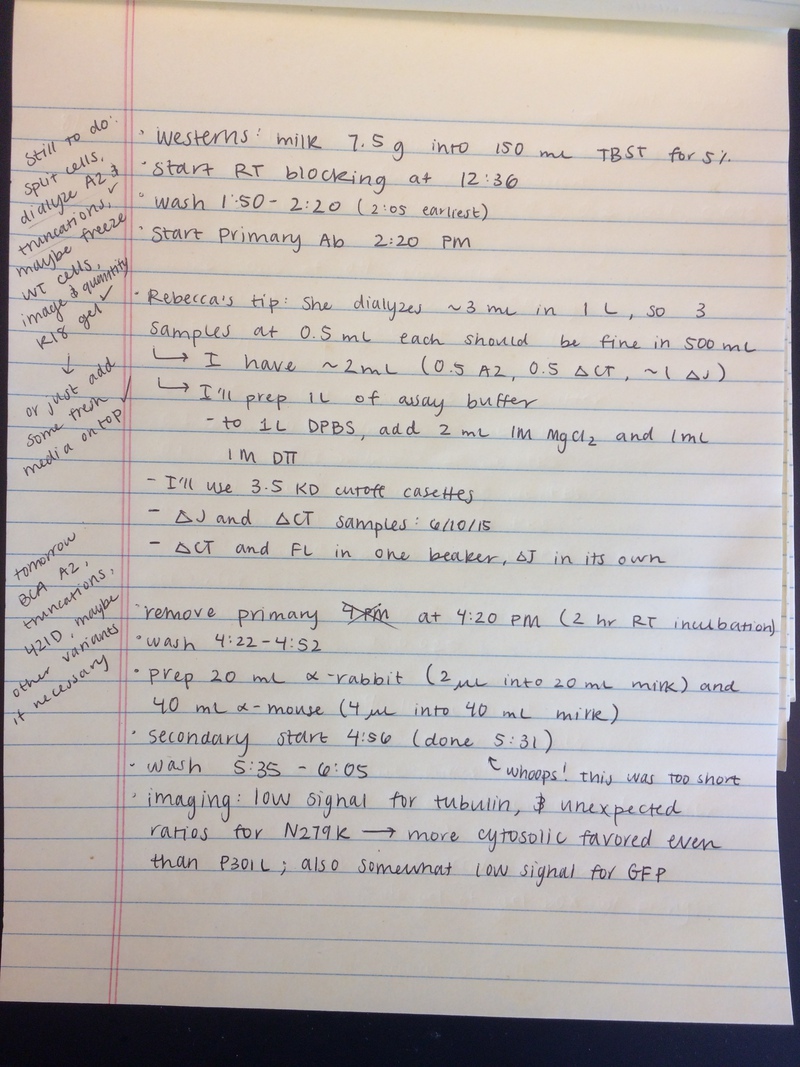 Still to do:
split cells,
dialyze A2 &
truncations, ✓
maybe freeze
WT cells,
image & quantity
K18 gel ✓
↓
or just add
some fresh
media on top ✓
tomorrow
BCA A2,
truncations,
421D, maybe
other variants
if necessary
· Westerns: milk 7.5 g into 150 mL TBST for 5%
· Start RT blocking at 12:36
· wash 1:50 - 2:20 (2:05 earliest)
· Start primary Ab 2:20 PM
· Rebecca's tip: She dialyzes ~3 mL in 1 L, so 3
samples at 0.5 mL each should be fine in 500 mL
↳ I have ~2mL (0.5 A2, 0.5 ΔCT, ~1 ΔJ)
↳ I'll prep 1L of assay buffer
- to 1L DPBS, add 2 mL 1M MgCl2 and 1mL
1M DTT
- I'll use 3.5 KD cutoff casettes
- ΔJ and ΔCT samples: 6/10/15
- ΔCT and FL in one beaker, ΔJ in its own
· remove primary 4 PM at 4:20 PM (2 hr RT incubation)
· wash 4:22-4:52
· prep 20 mL α-rabbit (2 μL into 20 mL milk) and
40 mL α-mouse (4 μL into 40 mL milk)
· secondary start 4:56 (done 5:31)
· wash 5:35 - 6:05 ↖ whoops! this was too short
· imaging: low signal for tubulin, & unexpected
ratios for N279K → more cytosolic favored even
than P301L; also somewhat low signal for GFP